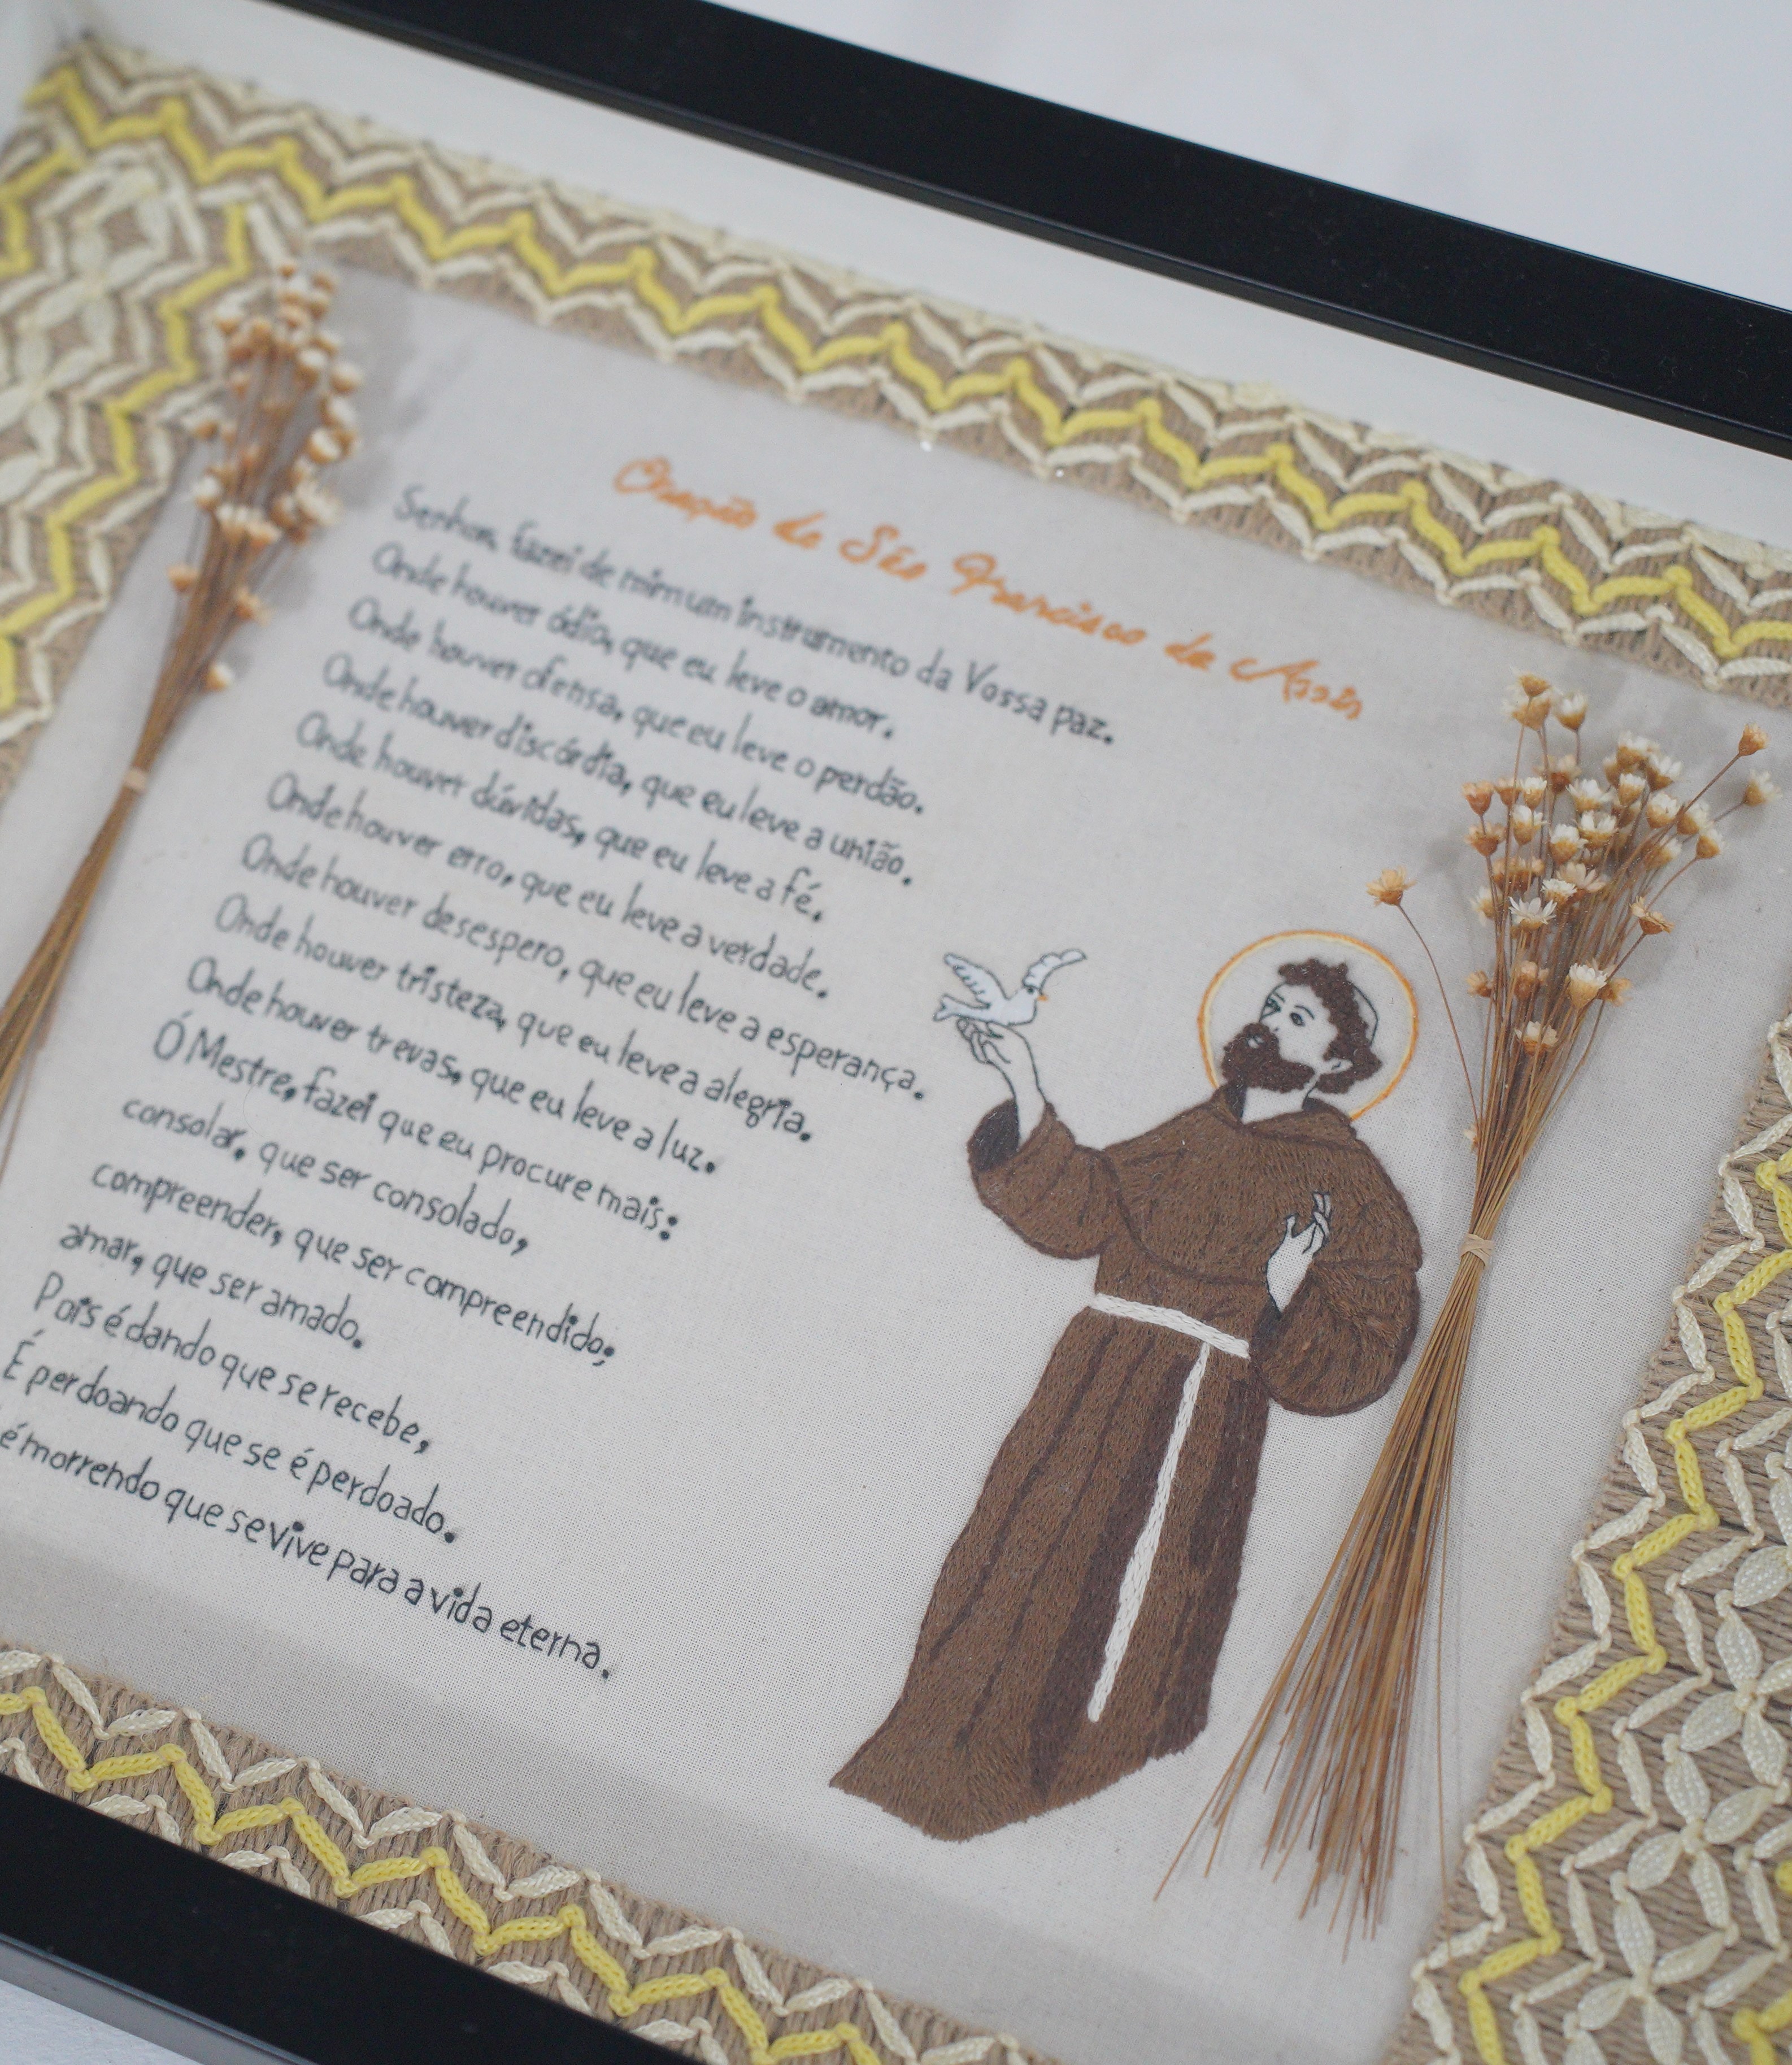 Oração de São Francisco de Assis
Senhor, fazei de mim um instrumento da Vossa paz.
Onde houver ódio, que eu leve o amor.
Onde houver ofensa, que eu leve o perdão.
Onde houver discórdia, que eu leve a união.
Onde houver dúvidas, que eu leve a fé.
Onde houver erro, que eu leve a verdade.
Onde houver desespero, que eu leve a esperança.
Onde houver tristeza, que eu leve a alegria.
Onde houver trevas, que eu leve a luz.
Ó Mestre, fazei que eu procure mais:
consolar, que ser consolado,
compreender, que ser compreendido;
amar, que ser amado.
Pois é dando que se recebe,
É perdoando que se é perdoado.
é morrendo que se vive para a vida eterna.